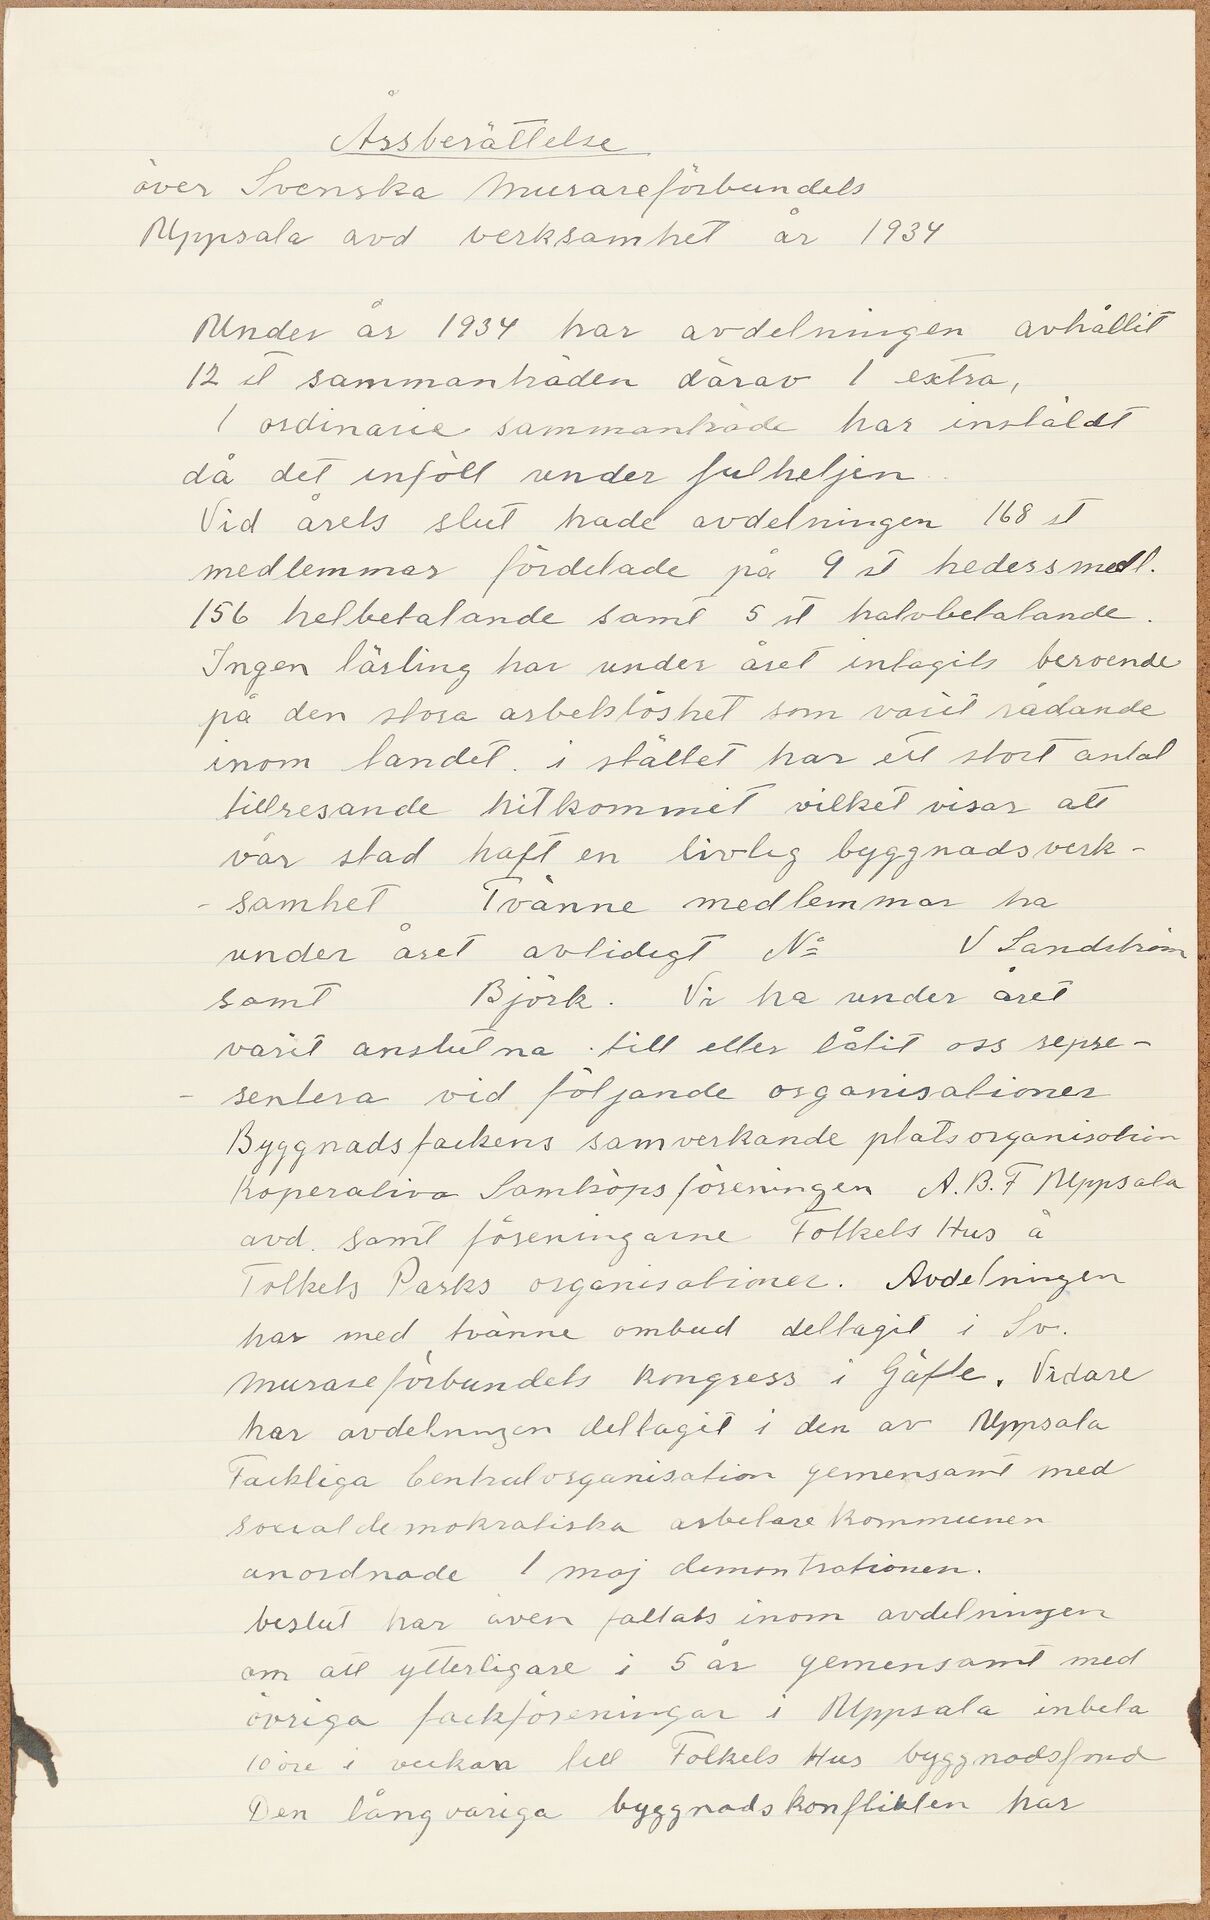 Årsberättelse
över Svenska Murareförbundets
Uppsala avd verksamhet år 1934
Under år 1934 har avdelningen avhållit
12 st sammanträden därav 1 extra,
1 ordinarie sammanträde har instäldt
då det inföll under julheljen
Vid årets slut hade avdelningen 168 st
medlemmar fördelade på 9 st hedersmedl.
156 helbetalande samt 5 st halvbetalande.
Ingen lärling har under året intagits beroende
på den stora arbetslöshet som varit rådande
inom landet. i stället har ett stort antal
tillresande hitkommit vilket visar att
vår stad haft en livlig byggnadsverk-
- samhet Tvänne medlemmar ha
under året avlidigt No V Sandström
samt Björk. Vi ha under året
varit anslutna till eller låtit oss repre-
- sentera vid följande organisationer
Byggnadsfackens samverkande platsorganisation
Koperativa Samköpsföreningen A.B.F Uppsala
avd. samt föreningarne Folkets Hus å
Folkets Parks organisationer. Avdelningen
har med tvänne ombud deltagit i Sv.
Murareförbundets Kongress i Gäfle. Vidare
har avdelningen deltagit i den av Uppsala
Fackliga Centralorganisation gemensamt med
socialdemokratiska arbetare kommunen
anordnade 1 maj demontrationen.
beslut har även fattats inom avdelningen
om att ytterligare i 5 år gemensamt med
övriga fackföreningar i Uppsala inbeta
10 öre i veckan till Folkets Hus byggnadsfond
Den långvariga byggnadskonflikten har